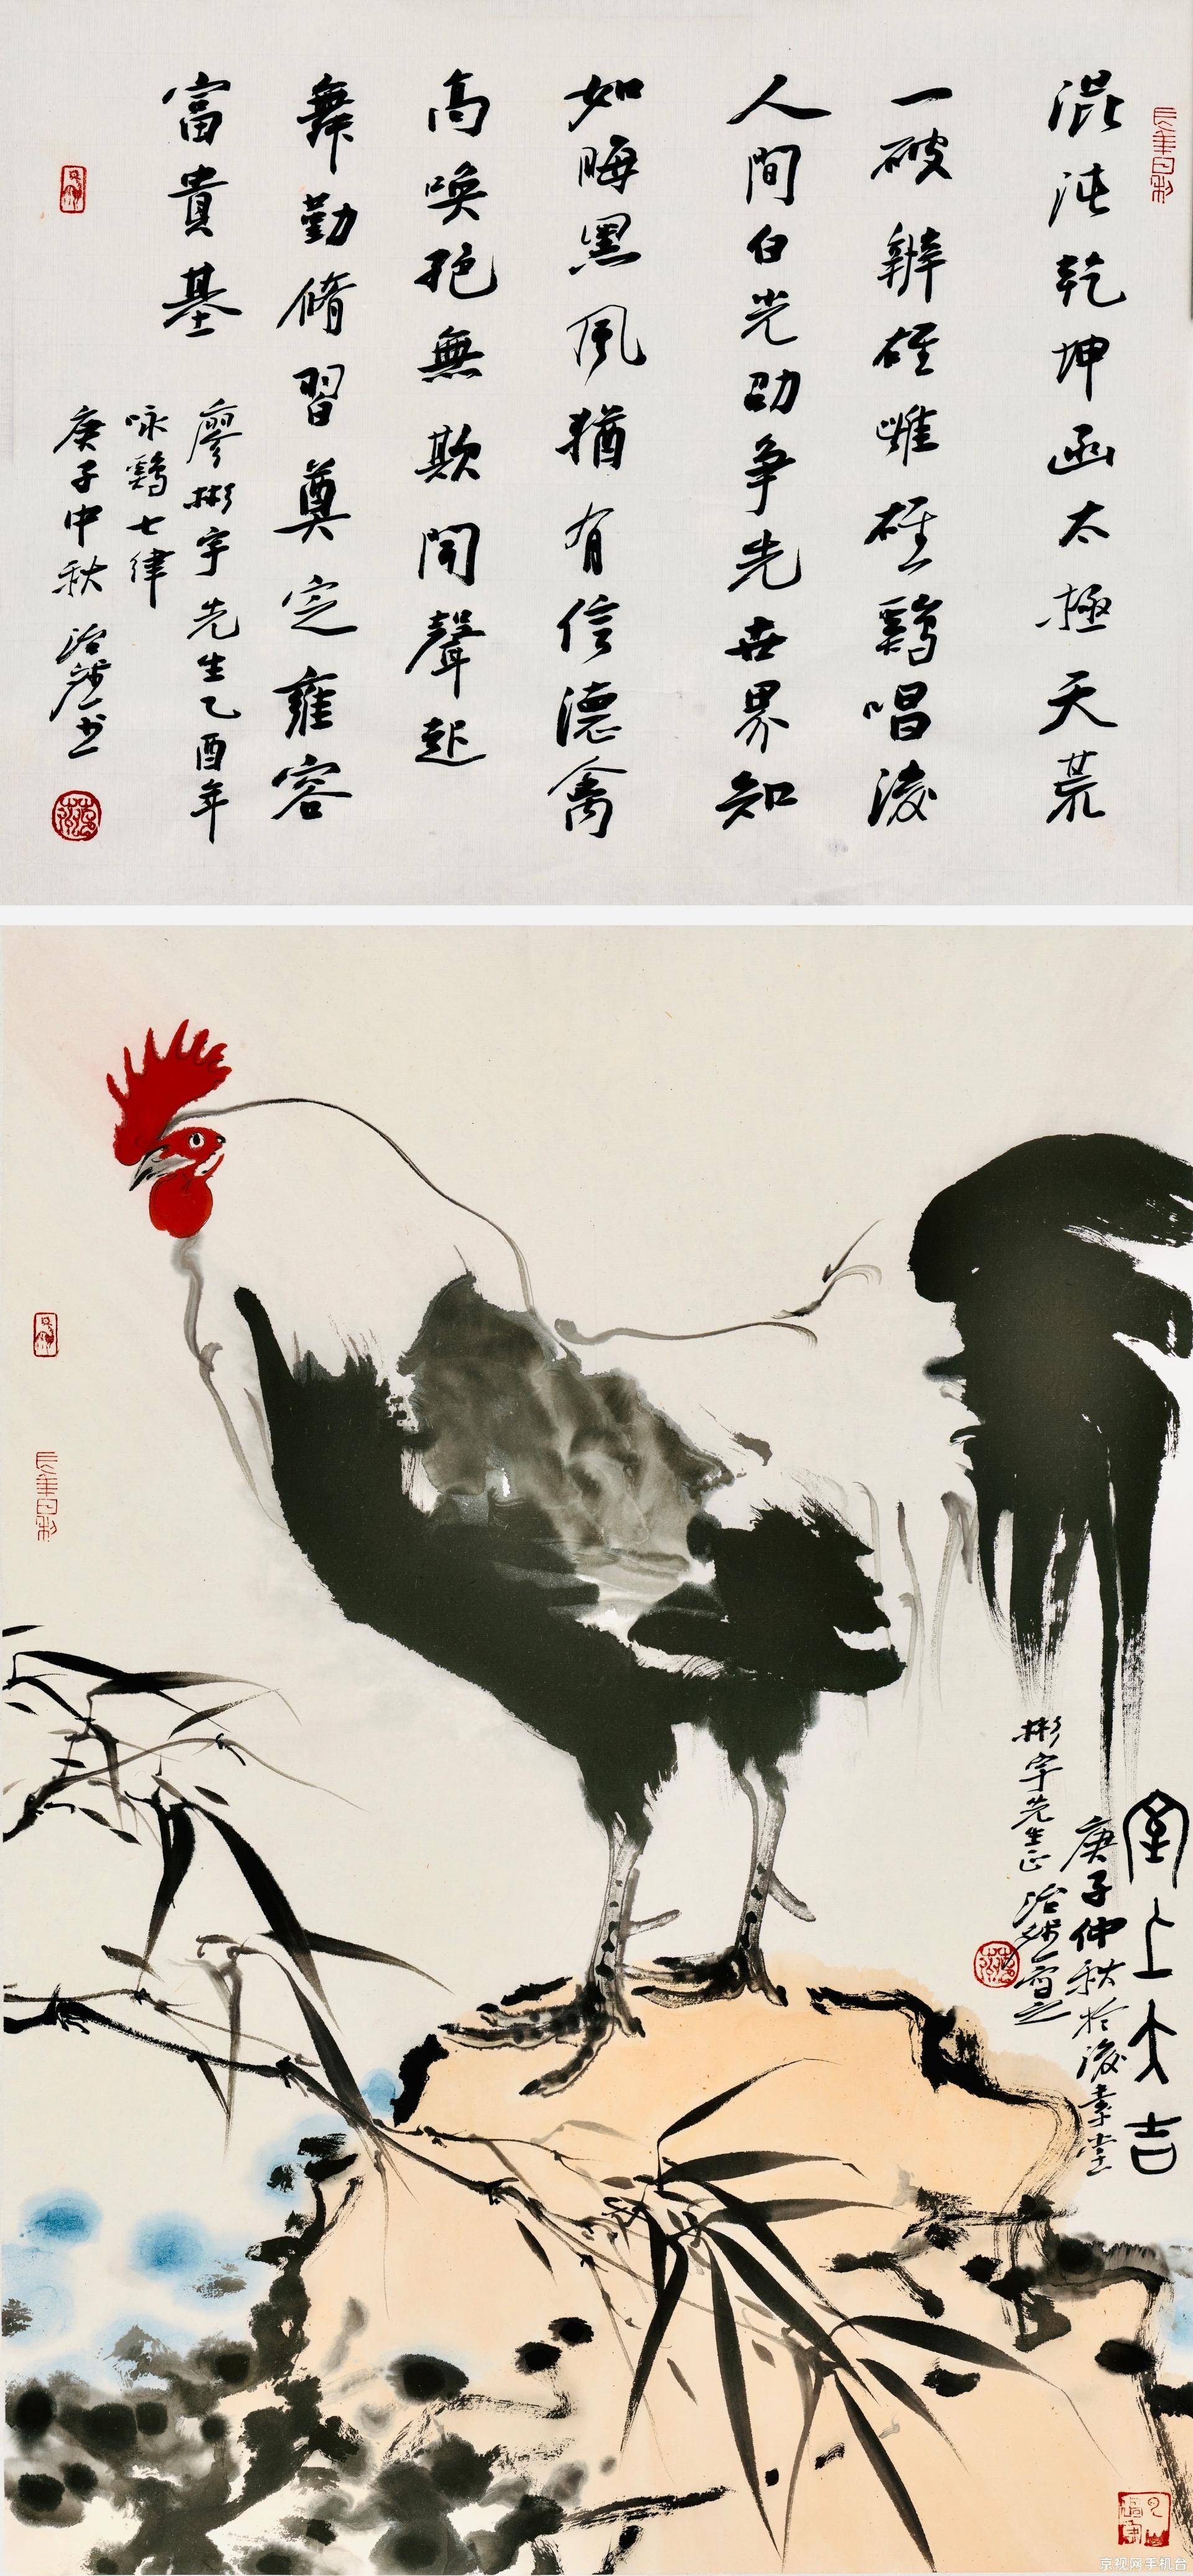 混沌乾坤函太極天荒
一破辨雄雌雄鷄唱凌
人間白光劭爭先世界知
如晦黑風猶有信德禽
高喚絕無欺聞聲起
舞勤脩習奠定雍容
富貴基
廖彬宇先生乙酉年
咏鷄七律
庚子中秋 治
室上大吉
庚子仲秋於澂素堂
彬宇先生正 治 寫之
京视网手机台